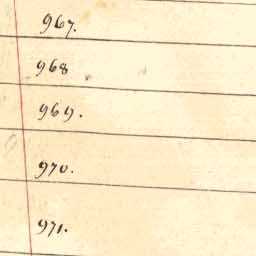 967.
968
969.
970.
971.